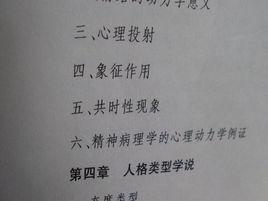 的动力学意义
三、心理投射
四、象征作用
五、共时性现象
六、精神病理学的心理动力学例证
第四章 人格类型学说
态度类型